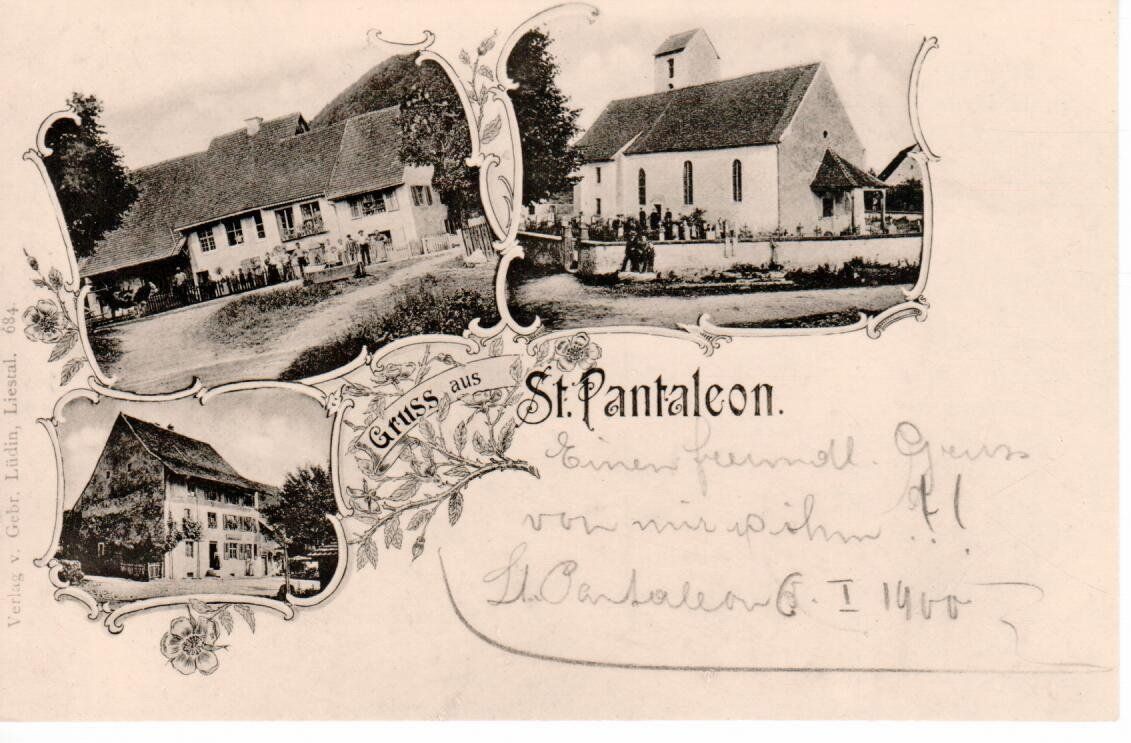 Gruss aus
St. Pantaleon.
Einen freundl. Gruss
von mir & ihm !!!
St. Pantaleon 6. I 1900
Verlag v. Gebr. Lüdin, Liestal. 684.